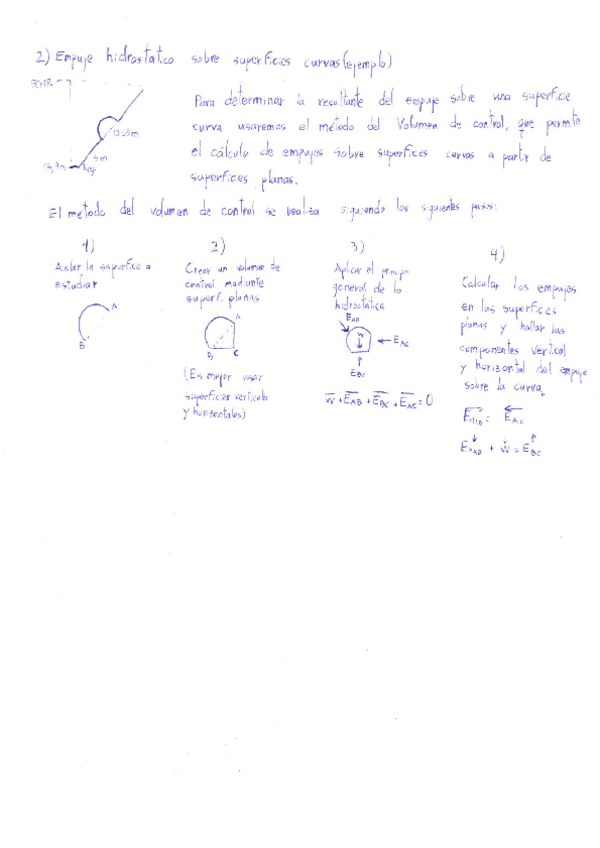 2) Empuje hidrostatico sobre superficies curvas (ejemplo)
Para determinar la resultante del empaje sobre una superfice
curva usaremos el método del Volumen de control, que permite
el cálculo de empujes sobre superfices curvas a partir de
superficies planas.
5m
El metodo del volumen de control se realiza siguiendo los siguientes pasos:
1)
Aislar la superfice a
estudiar
A
B
2)
Crear un volumen de
control mediante
superf. planas
A
B
C
(Es mejor usar
superficies verticales
y horizontales)
3)
Aplicar el principio
general de la
hidrostática
EAB
W
EAC
EBC
W + EAB + EBC + EAC = 0
4)
Calcular los empujes
en las superfices
planas y hallar las
componentes vertical
y horizontal del empuje
sobre la curva.
EHAB = EAC
EVAB + W = EBC